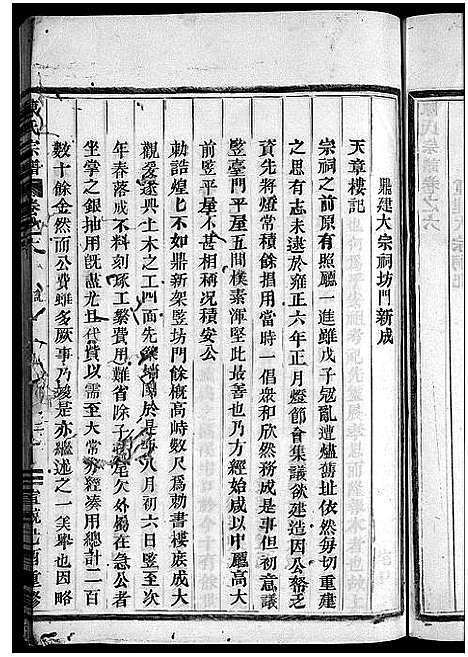 鼎建大宗祠坊門新成
天章樓記
宗祠之前原有照廳一進雖戊子寇亂遭燼舊址依然每切重建
之思有志未逮於雍正六年正月燈節會集議欲建造因公帑乏
資先將燈常積餘捐用當時一倡衆和欣然務成是事但初意議
竪臺門平屋五間樸素渾堅此最善也乃方經始咸以中廳高大
前竪平屋不甚相稱况積安公
勅誥煌煌不如鼎新架竪坊門餘概高峙數尺爲勅書樓庶成大
觀爰遂興土木之工四面先築墻於是歲八月初六日竪造次
年春落成不料刻琢工繁費用難省除子欠外撮在急公者
坐掌之銀抽用旣盡尤且代貸以需至大常亦經凑用總計二百
數十餘金然而公費雖多厥事乃竣是亦繼述之一美舉也因略
氏宗譜
宣統
重修
氏宗譜卷之六